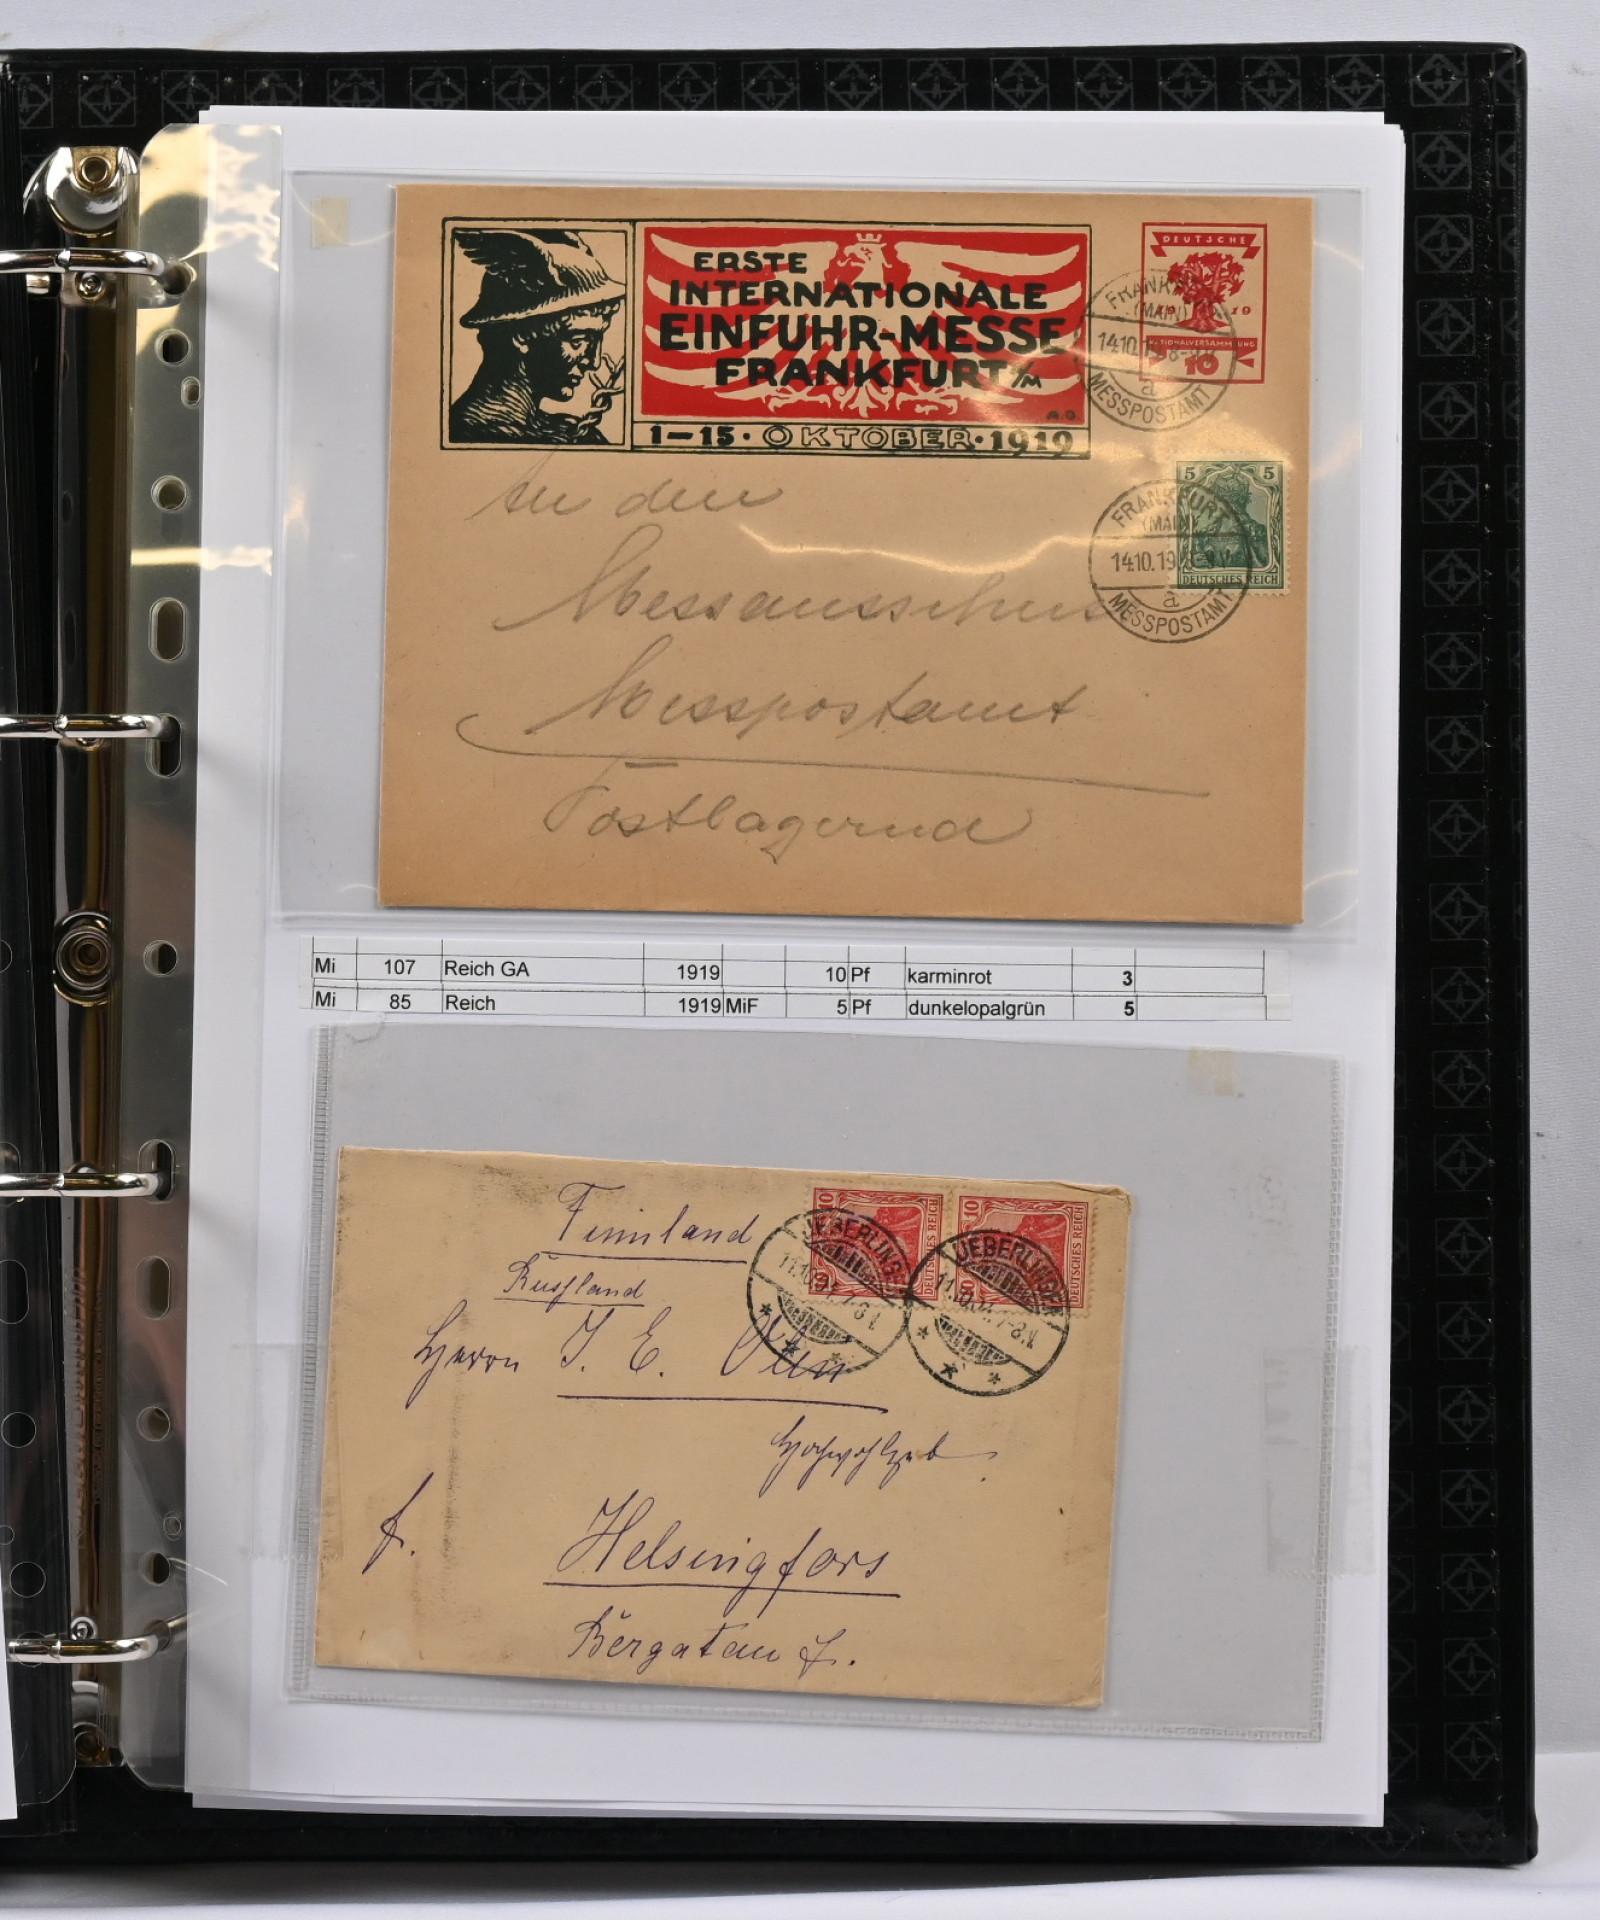 ERSTE
INTERNATIONALE
EINFUHR-MESSE
FRANKFURT a/M
A.O
1-15·OKTOBER·1919
DEUTSCHE
19 19
NATIONALVERSAMMLUNG
10
FRANKFURT
(MAIN)
14.10.19. 8-9V.
a
MESSPOSTAMT
5 5
DEUTSCHES REICH
FRANKFURT
(MAIN)
14.10.19.
a
MESSPOSTAMT
An den
Messausschuss
Messpostamt
Postlagernd
Mi 107 Reich GA 1919 10 Pf karminrot 3
Mi 85 Reich 1919 MiF 5 Pf dunkelopalgrün 5
10
DEUTSCHES REICH
10
DEUTSCHES REICH
UEBERLINGEN
UEBERLINGEN
Finnland
Russland
Herrn J. E.
Hochwohlgeb.
f.
Helsingfors